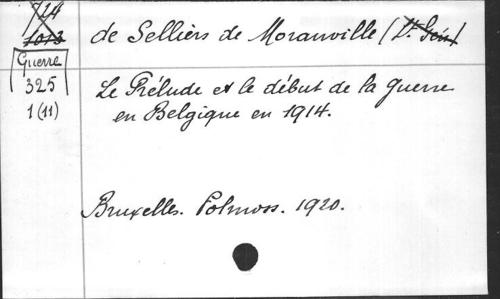 de Selliers de Moranville (
Guerre
325
1 (11)
Le Prélude et le début de la guerre
en Belgique en 1914.
Bruxelles. Polmoss. 1920.